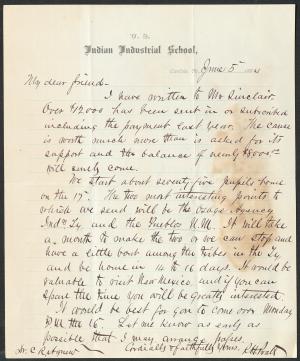 U. S.
Indian Industrial School,
June 5
My dear friend.
I have written to Mr Sinclair.
Over $12000 has been sent in or subscribed
including the payment last year. The cause
is worth much more than is asked for its
support and the balance of nearly $8000
will surely come.
We start about seventy five pupils home
on the 17th. The two most interesting points to
which we send will be the Osage Agency
Ind. Ty and the Pueblos N.M. It will take
a month to make the two or we can stop and
have a little bout among the tribes in the Ty
and be home in 14 to 16 days. It would be
valuable to visit New Mexico, and if you can
spare the time you will be greatly interested.
It would be best for you to come on Monday
the 16th. Let me know as early as
possible that I may arrange passes.
Cordially & faithfully Yours
Dr. C.